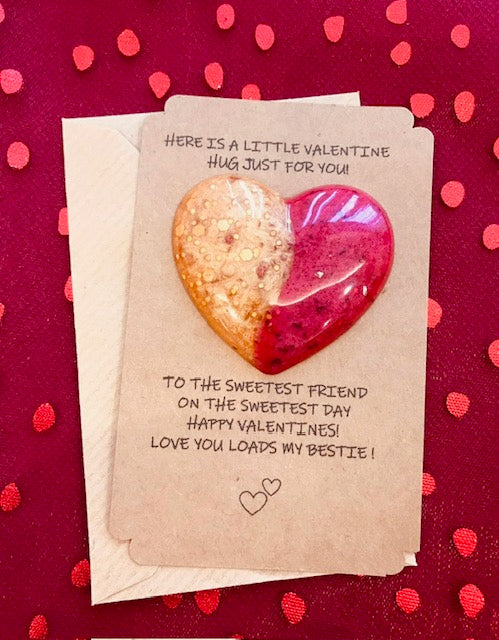 HERE IS A LITTLE VALENTINE
HUG JUST FOR YOU!
TO THE SWEETEST FRIEND
ON THE SWEETEST DAY
HAPPY VALENTINES!
LOVE YOU LOADS MY BESTIE!